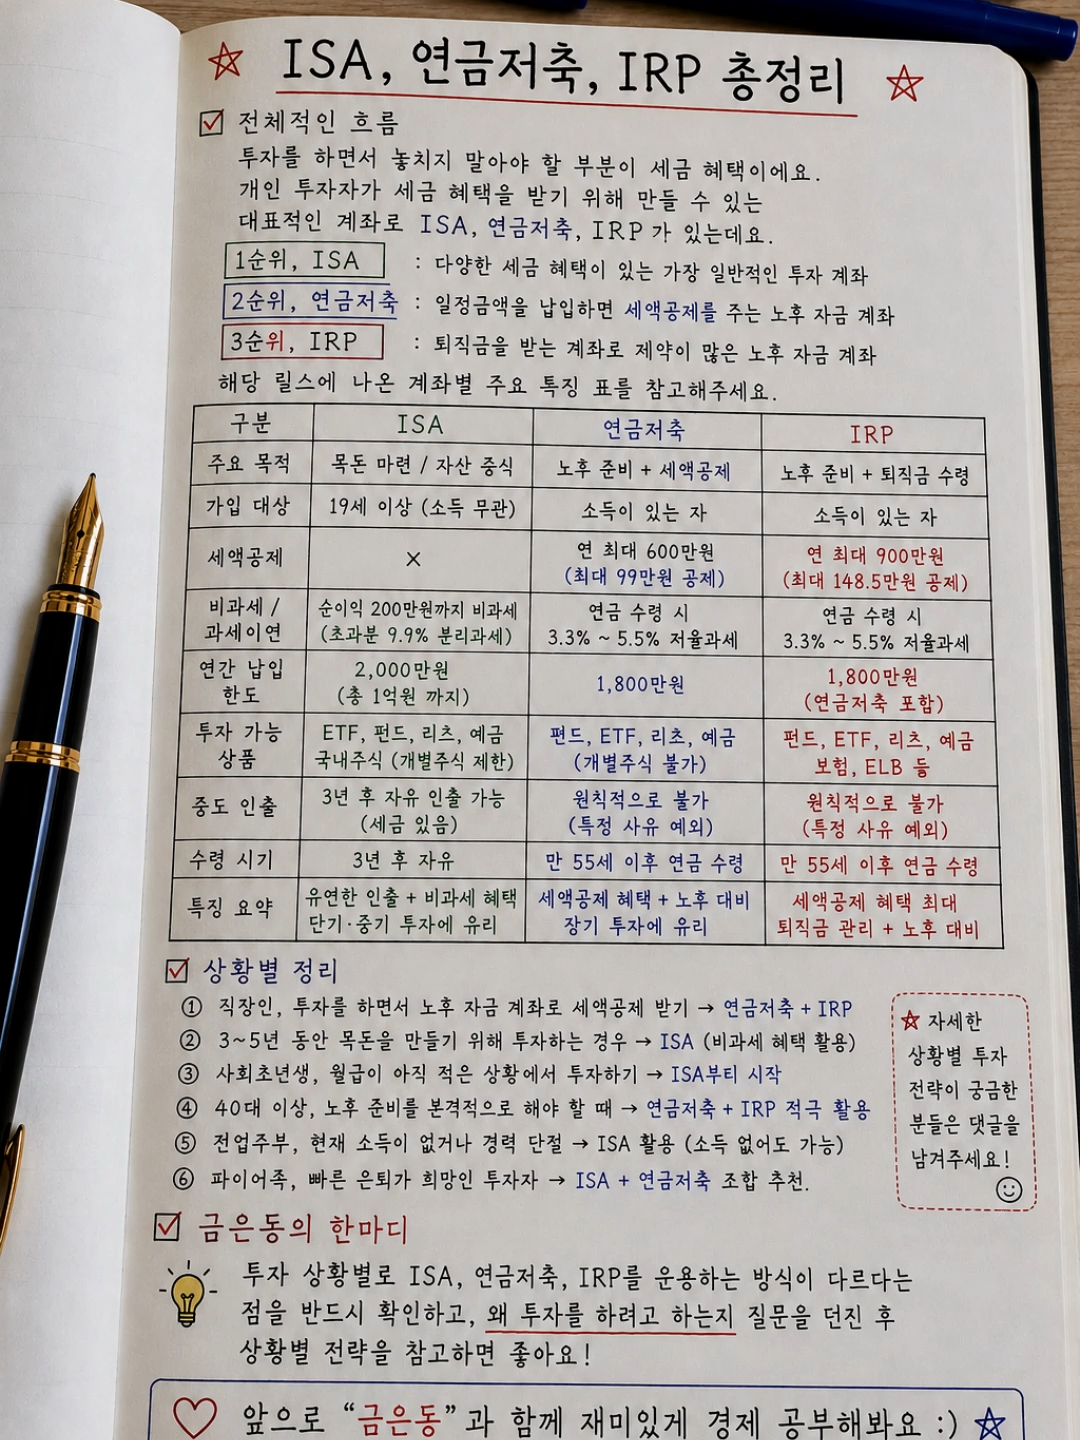 ISA, 연금저축, IRP 총정리
전체적인 흐름
투자를 하면서 놓치지 말아야 할 부분이 세금 혜택이에요.
개인 투자자가 세금 혜택을 받기 위해 만들 수 있는
대표적인 계좌로 ISA, 연금저축, IRP가 있는데요.
1순위, ISA : 다양한 세금 혜택이 있는 가장 일반적인 투자 계좌
2순위, 연금저축 : 일정금액을 납입하면 세액공제를 주는 노후 자금 계좌
3순위, IRP : 퇴직금을 받는 계좌로 제약이 많은 노후 자금 계좌
해당 릴스에 나온 계좌별 주요 특징 표를 참고해주세요.
구분 ISA 연금저축 IRP
주요 목적 목돈 마련 / 자산 증식 노후 준비 + 세액공제 노후 준비 + 퇴직금 수령
가입 대상 19세 이상 (소득 무관) 소득이 있는 자 소득이 있는 자
세액공제 × 연 최대 600만원 (최대 99만원 공제) 연 최대 900만원 (최대 148.5만원 공제)
비과세 / 과세이연 순이익 200만원까지 비과세 (초과분 9.9% 분리과세) 연금 수령 시 3.3% ~ 5.5% 저율과세 연금 수령 시 3.3% ~ 5.5% 저율과세
연간 납입 한도 2,000만원 (총 1억원 까지) 1,800만원 1,800만원 (연금저축 포함)
투자 가능 상품 ETF, 펀드, 리츠, 예금 국내주식 (개별주식 제한) 편드, ETF, 리츠, 예금 (개별주식 불가) 펀드, ETF, 리츠, 예금 보험, ELB 등
중도 인출 3년 후 자유 인출 가능 (세금 있음) 원칙적으로 불가 (특정 사유 예외) 원칙적으로 불가 (특정 사유 예외)
수령 시기 3년 후 자유 만 55세 이후 연금 수령 만 55세 이후 연금 수령
특징 요약 유연한 인출 + 비과세 혜택 단기·중기 투자에 유리 세액공제 혜택 + 노후 대비 장기 투자에 유리 세액공제 혜택 최대 퇴직금 관리 + 노후 대비
상황별 정리
① 직장인, 투자를 하면서 노후 자금 계좌로 세액공제 받기 → 연금저축 + IRP
② 3~5년 동안 목돈을 만들기 위해 투자하는 경우 → ISA (비과세 혜택 활용)
③ 사회초년생, 월급이 아직 적은 상황에서 투자하기 → ISA부티 시작
④ 40대 이상, 노후 준비를 본격적으로 해야 할 때 → 연금저축 + IRP 적극 활용
⑤ 전업주부, 현재 소득이 없거나 경력 단절 → ISA 활용 (소득 없어도 가능)
⑥ 파이어족, 빠른 은퇴가 희망인 투자자 → ISA + 연금저축 조합 추천.
자세한
상황별 투자
전략이 궁금한
분들은 댓글을
남겨주세요!
금은동의 한마디
투자 상황별로 ISA, 연금저축, IRP를 운용하는 방식이 다르다는
점을 반드시 확인하고, 왜 투자를 하려고 하는지 질문을 던진 후
상황별 전략을 참고하면 좋아요!
앞으로 “금은동”과 함께 재미있게 경제 공부해봐요 :)